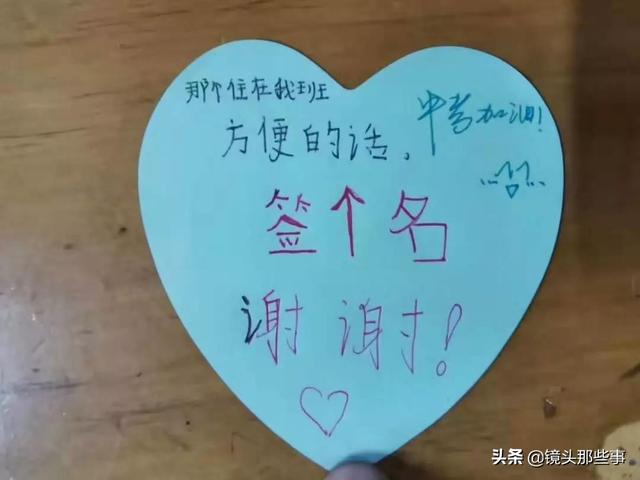 那个住在我班
方便的话、
中考加油！
签个名
谢谢！
头条 @镜头那些事